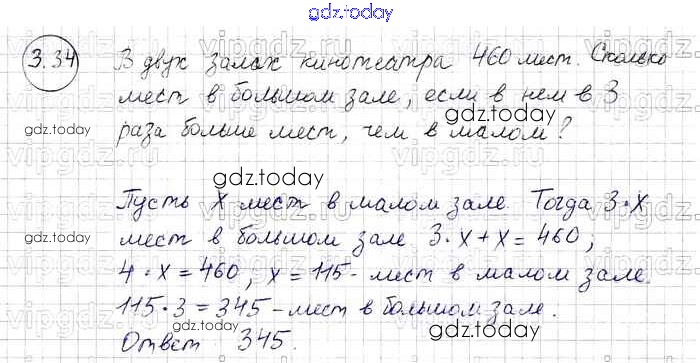 gdz.today
3.34 В двух залах кинотеатра 460 мест. Сколько
мест в большом зале, если в нем в 3
gdz.today gdz.today
раза больше мест, чем в малом?
gdz.today
Пусть x мест в малом зале. Тогда 3·x
мест в большом зале. 3·x+x=460;
4·x=460; x=115 - мест в малом зале.
115·3=345 - мест в большом зале.
gdz.today gdz.today
Ответ 345.